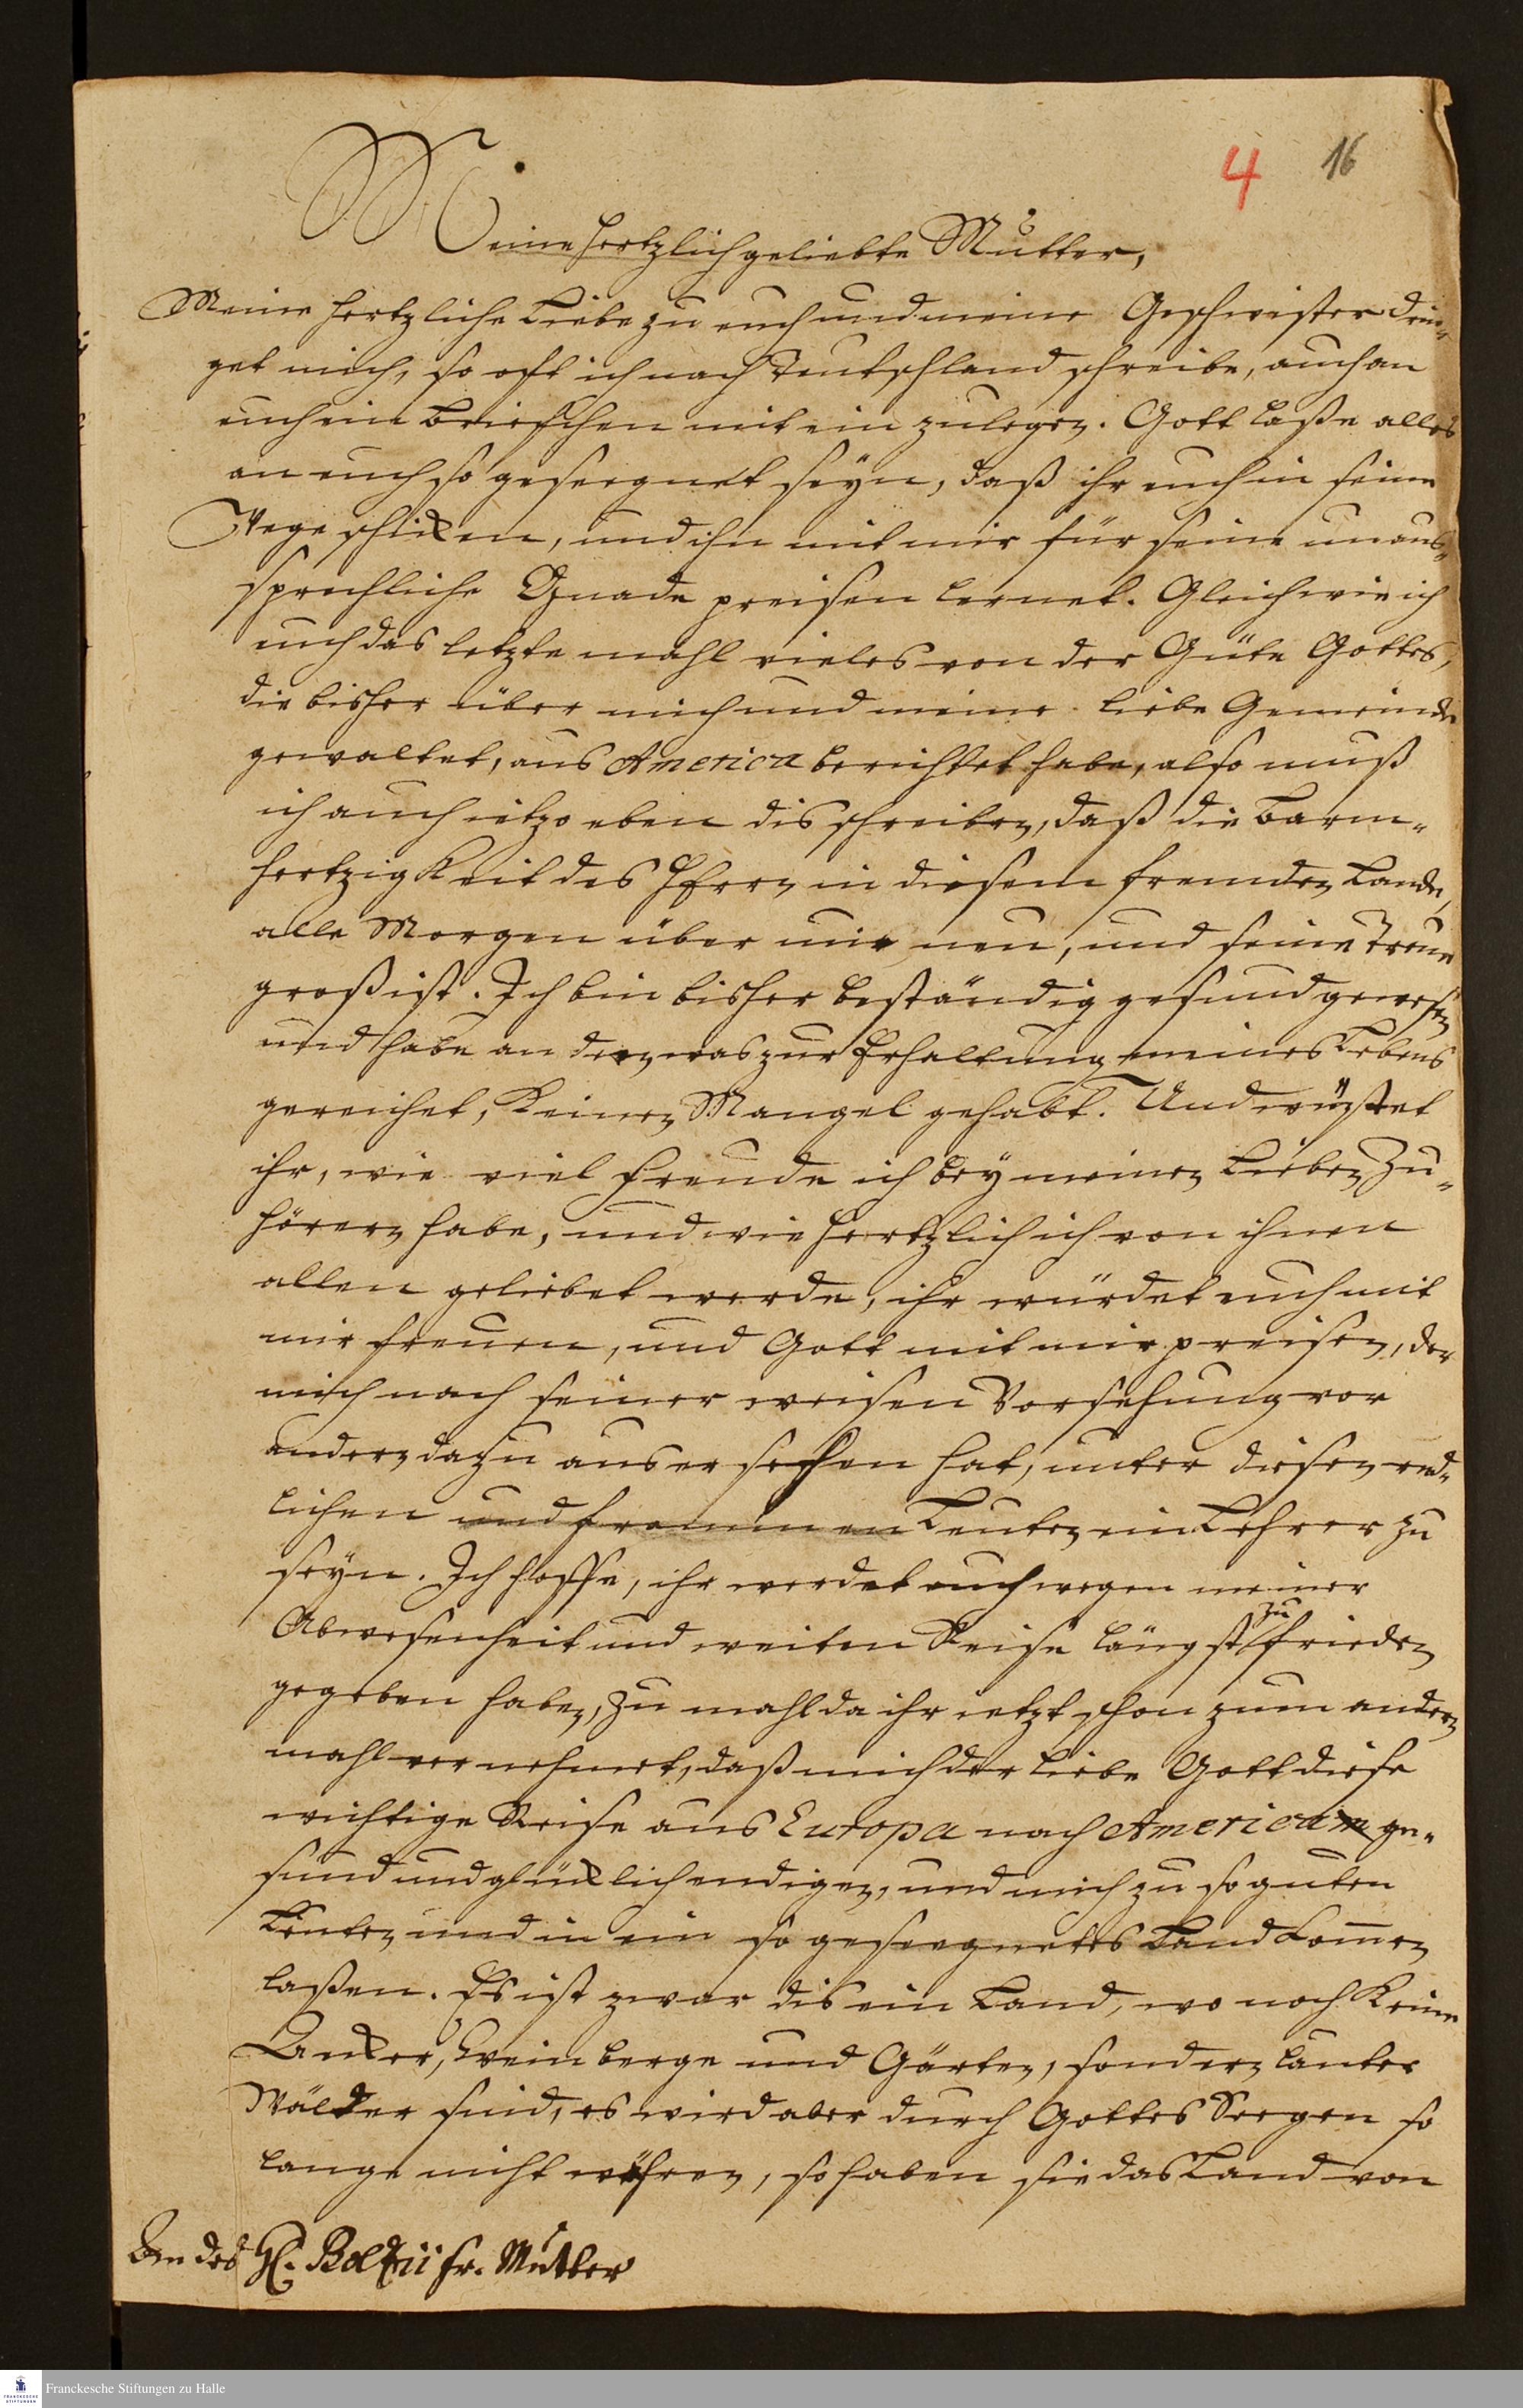 4 16
Meine hertzlich geliebte Mutter,
Meine hertzliche Liebe zu euch und meine Geschwister drin-
get mich, so oft ich nach Teutschland schreibe, auch an
euch ein briefchen mit ein zulegen. Gott laße alles
an euch so geseegnet seyn, daß ihr euch in seine
Wege schiken, und ihn mit mir für seine unaus-
sprechliche Gnade preisen lernet. Gleichwie ich
euch das letzte mahl vieles von der Güte Gottes,
die bisher über mich und meine liebe Gemeinde
gewaltet, aus America berichtet habe, also muß
ich auch ietzo eben dis schreiben, daß die Barm-
hertzigkeit des Herrn in diesem fremden Lande,
alle Morgen über mir neu, und seine Treue
groß ist. Ich bin bisher beständig gesund gewesen
und habe an dem, was zur Erhaltung meines Lebens
gereichet, keinen Mangel gehabt. Und wüstet
ihr, wie viel Freude ich bey meinen Lieben Zu-
hörern habe, und wie hertzlich ich von ihnen
allen geliebet werde, ihr würdet euch mit
mir freuen, und Gott mit mir preisen, der
mich nach seiner weisen Vorsehung vor
andern dazu aus er sehen hat, unter diesen red-
lichen und frommen Leuten ein Lehrer zu
seyn. Ich hoffe, ihr werdet euch wegen meiner
Abwesenheit und weiten Reise längst zu frieden
gegeben haben, zu mahl da ihr ietzt schon zum andern
mahl vernehmet, daß mich der liebe Gott diese
wichtige Reise aus Europa nach America ge-
sund und glüklich endigen, und mich zu so guten
Leuten und in ein so geseegnetes Land kommen
laßen. Es ist zwar dis ein Land, wo noch keine
Aeker, Weinberge und Gärten, sondern lauter
Wälder sind, es wird aber durch Gottes Seegen so
lange nicht währen, so haben sie das Land von
An des H. Boltzii fr. Mutter
Franckesche Stiftungen zu Halle